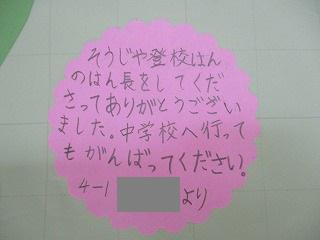 そうじや登校はん
のはん長をしてくだ
さってありがとうござい
ました。中学校へ行って
もがんばってください。
4-1 より